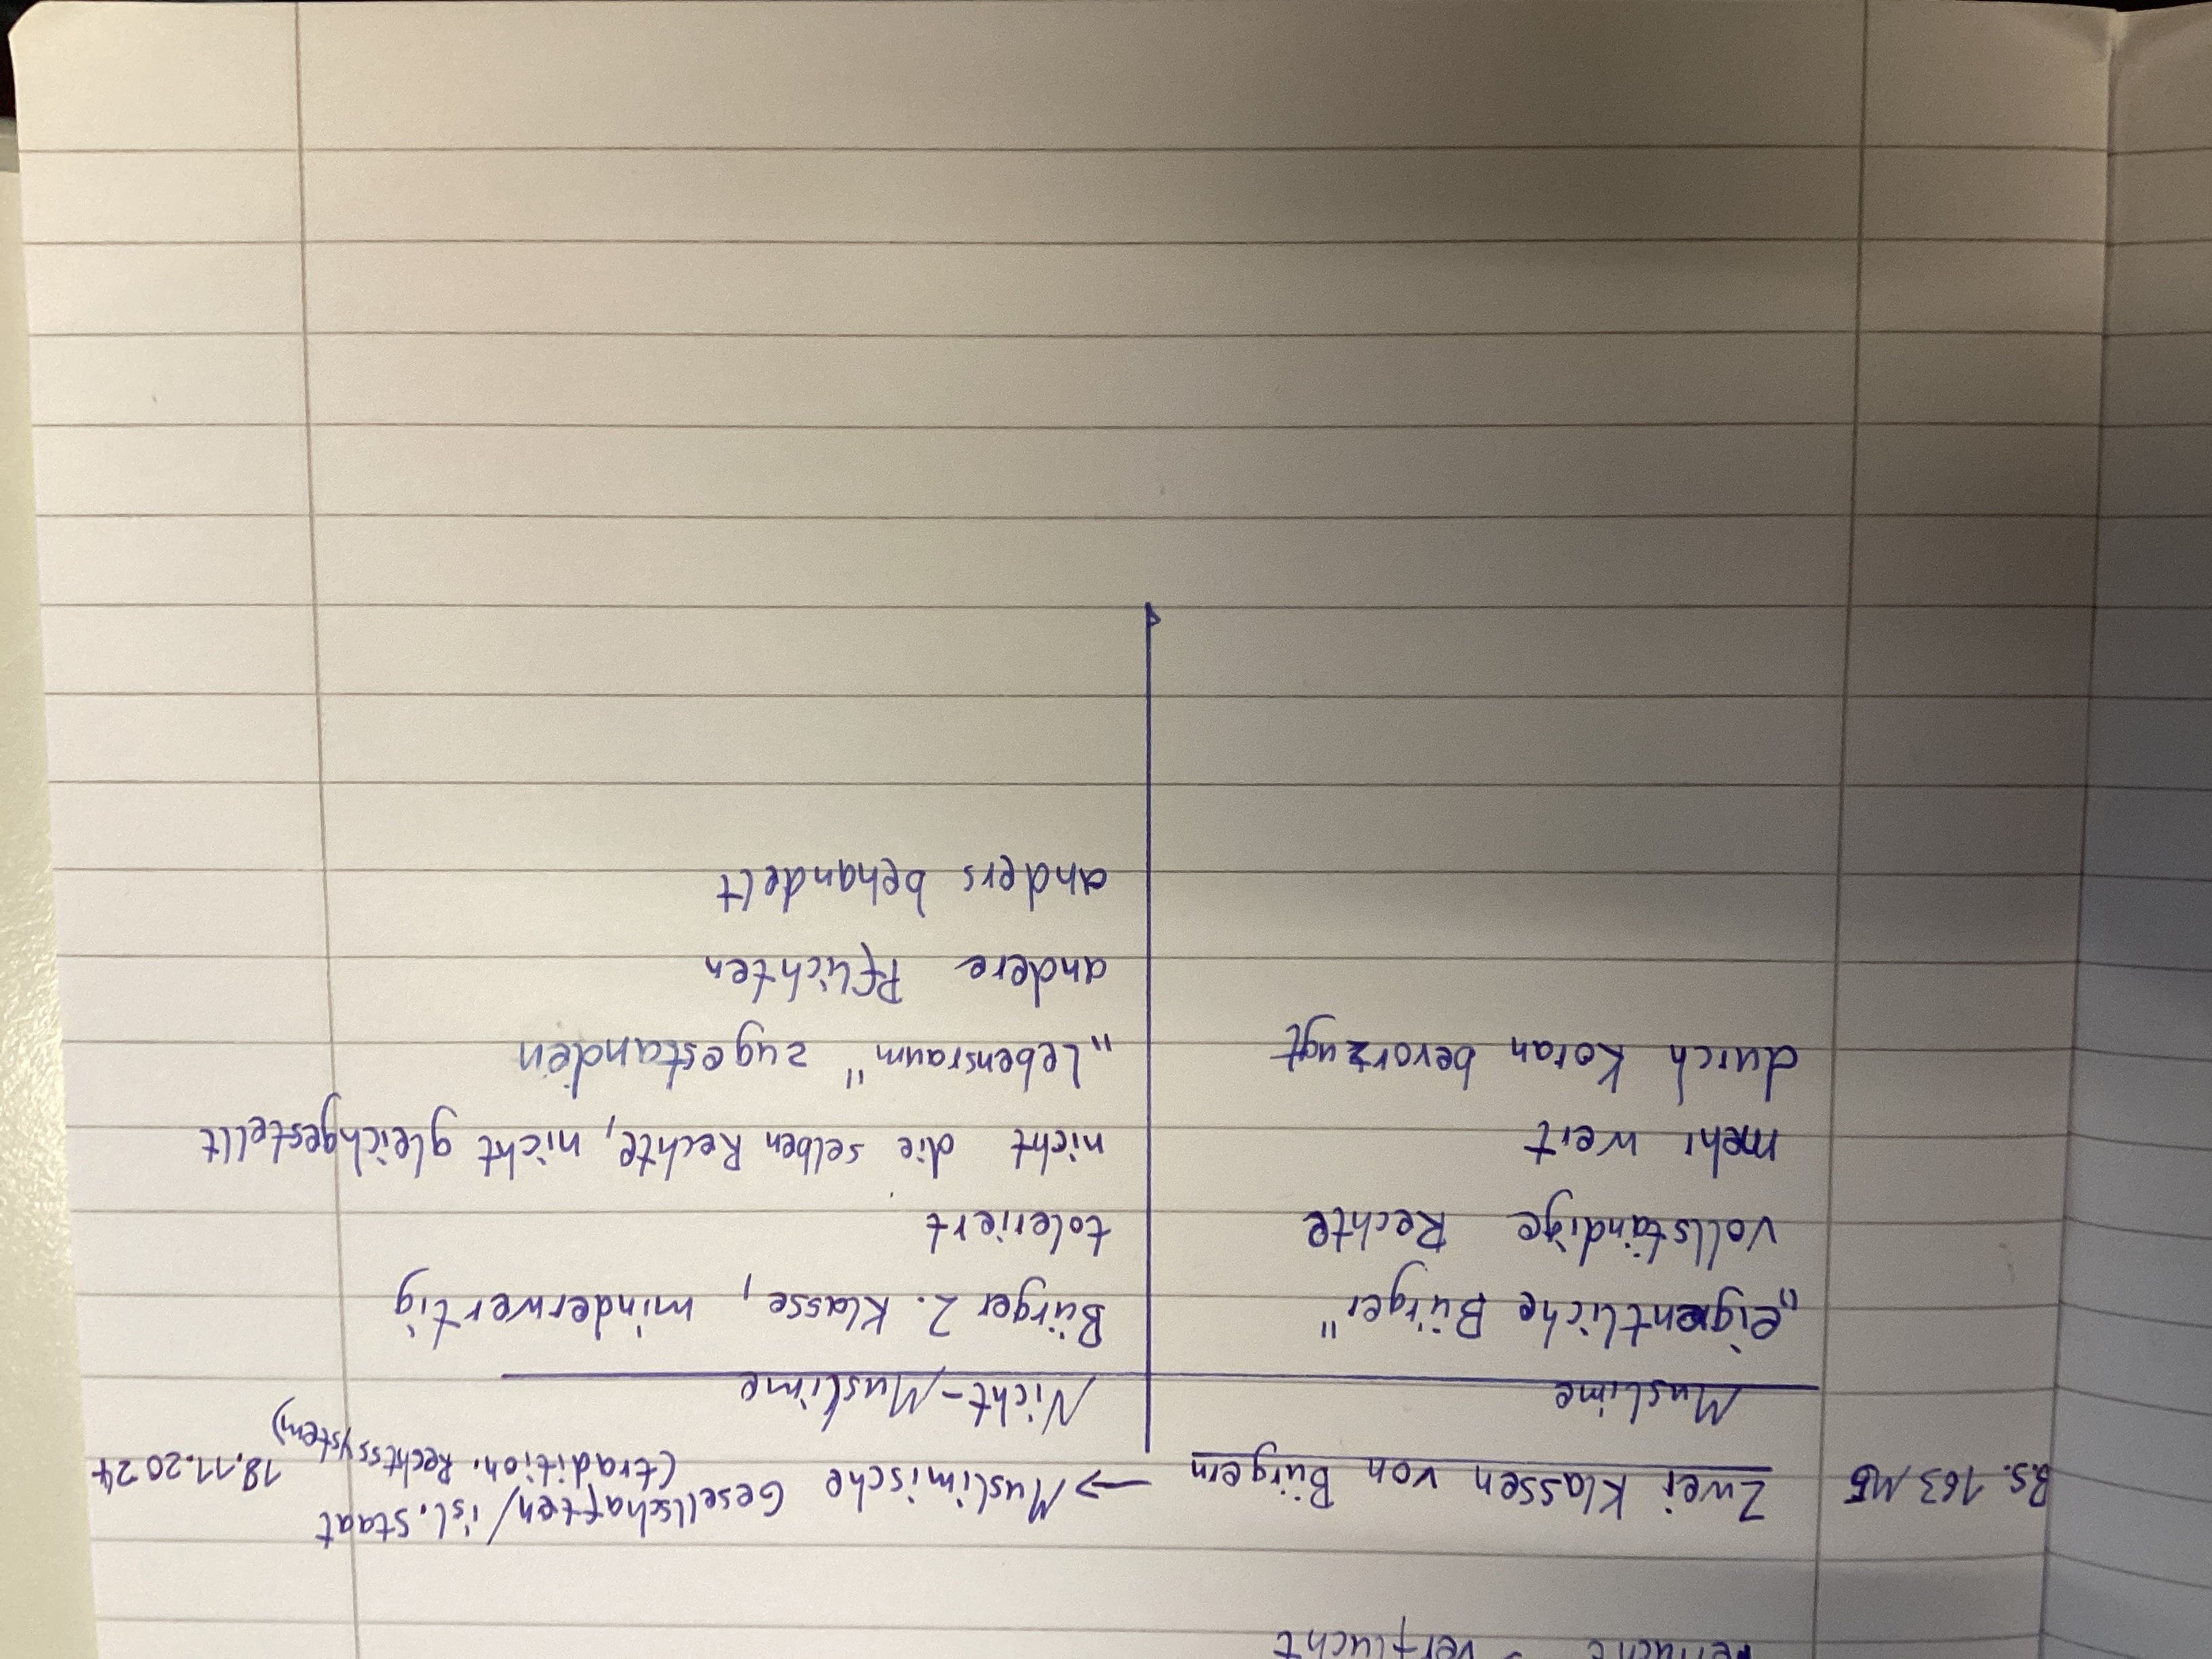 verflucht
B.S. 163 M5 Zwei Klassen von Bürgern → Muslimische Gesellschaften/isl. Staat
(tradition. Rechtssystem) 18.11.2024
Muslime
„eigentliche Bürger"
vollständige Rechte
mehr wert
durch Koran bevorzugt
Nicht-Muslime
Bürger 2. Klasse, minderwertig
toleriert
nicht die selben Rechte, nicht gleichgestellt
„Lebensraum" zugestanden
andere Pflichten
anders behandelt